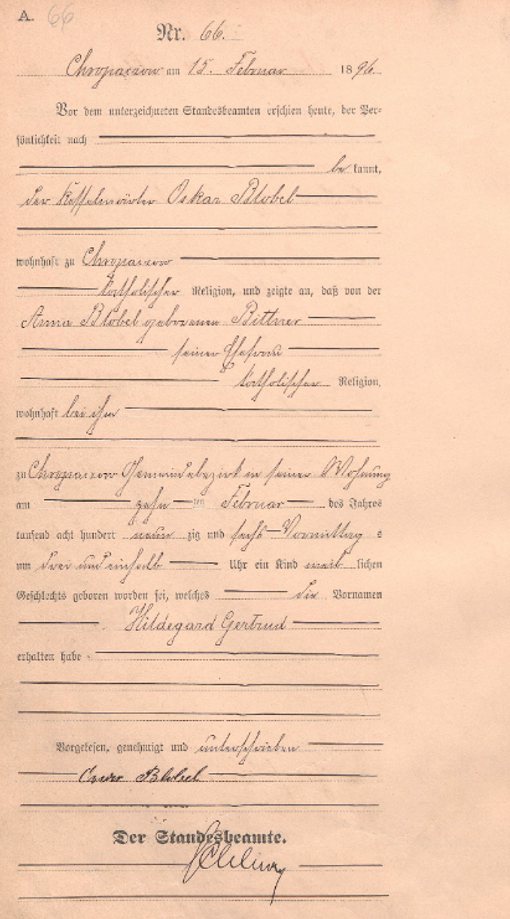 A. 66
Nr. 66.
Chropaczow am 15. Februar 1896.
Vor dem unterzeichneten Standesbeamten erschien heute, der Per-
sönlichkeit nach
be kannt,
der Kesselwärter Oskar Blobel
wohnhaft zu Chropaczow
katholischer Religion, und zeigte an, daß von der
Anna Blobel geborenen Bittner
seiner Ehefrau
katholischer Religion,
wohnhaft bei ihm
zu Chropaczow Gemeindebezirk in seiner Wohnung
am zehn ten Februar des Jahres
tausend acht hundert neun zig und sechs Vormittag s
um drei und einhalb Uhr ein Kind weib lichen
Geschlechts geboren worden sei, welches die Vornamen
Hildegard Gertrud
erhalten habe
Vorgelesen, genehmigt und unterschrieben
Oscar Blobel
Der Standesbeamte.